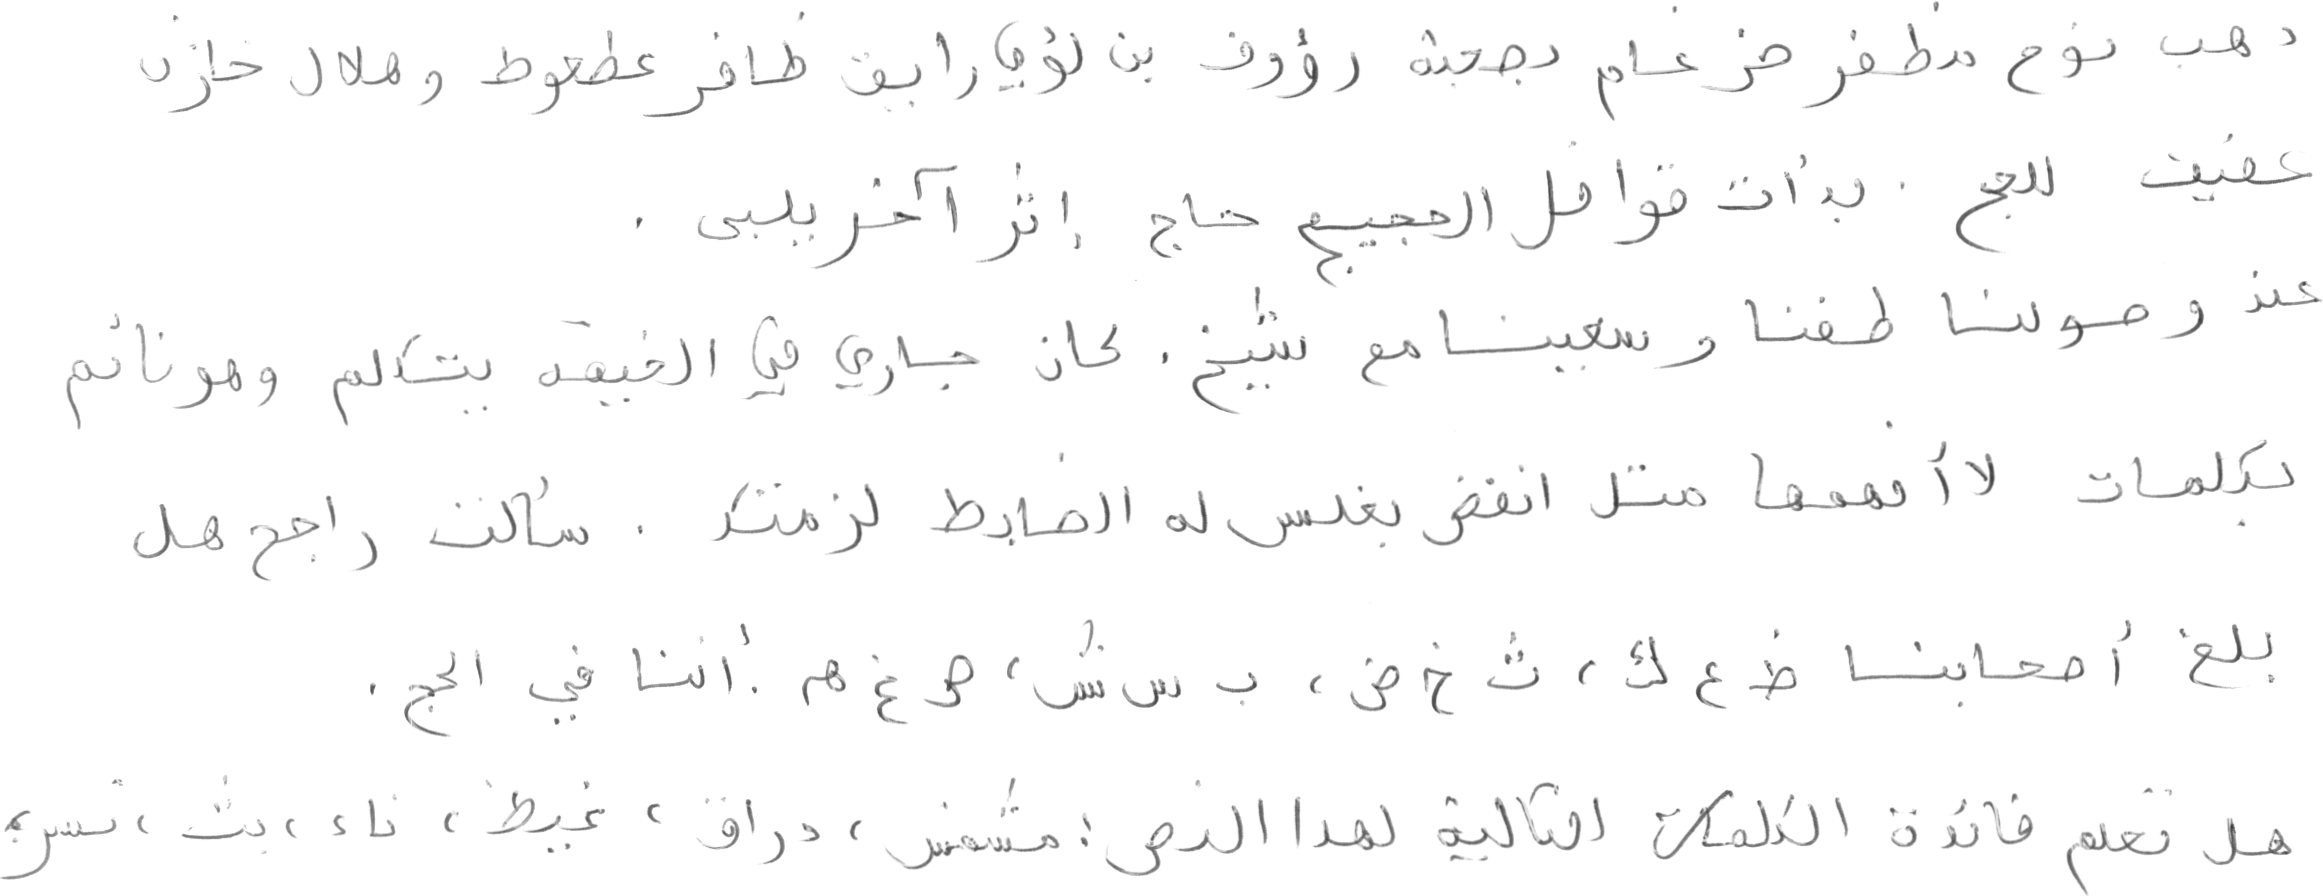 ذهب نوح مظفر ضرغام بصحبة رؤوف بن لؤي رايق ظافر عطعوط و هلال خازن
عفيف للحج . بدأت قوافل الحجيج حاج إثر آخر يلبى .
عند وصولنا طفنا و سعينا مع شيخ . كان جاري في الخيمة يتكلم وهو نائم
بكلمات لا أفهمها مثل انفض بغلس له الضابط لزمتك . سألت راجح هل
بلغ أصحابنا ظ ع ك ، ث خ ض ، ب س ش ، ص غ هم . أننا في الحج .
هل تعلم فائدة الكلمات التالية لهذا النص : مشمش ، دراق ، غيظ ، ناء ، بث ،